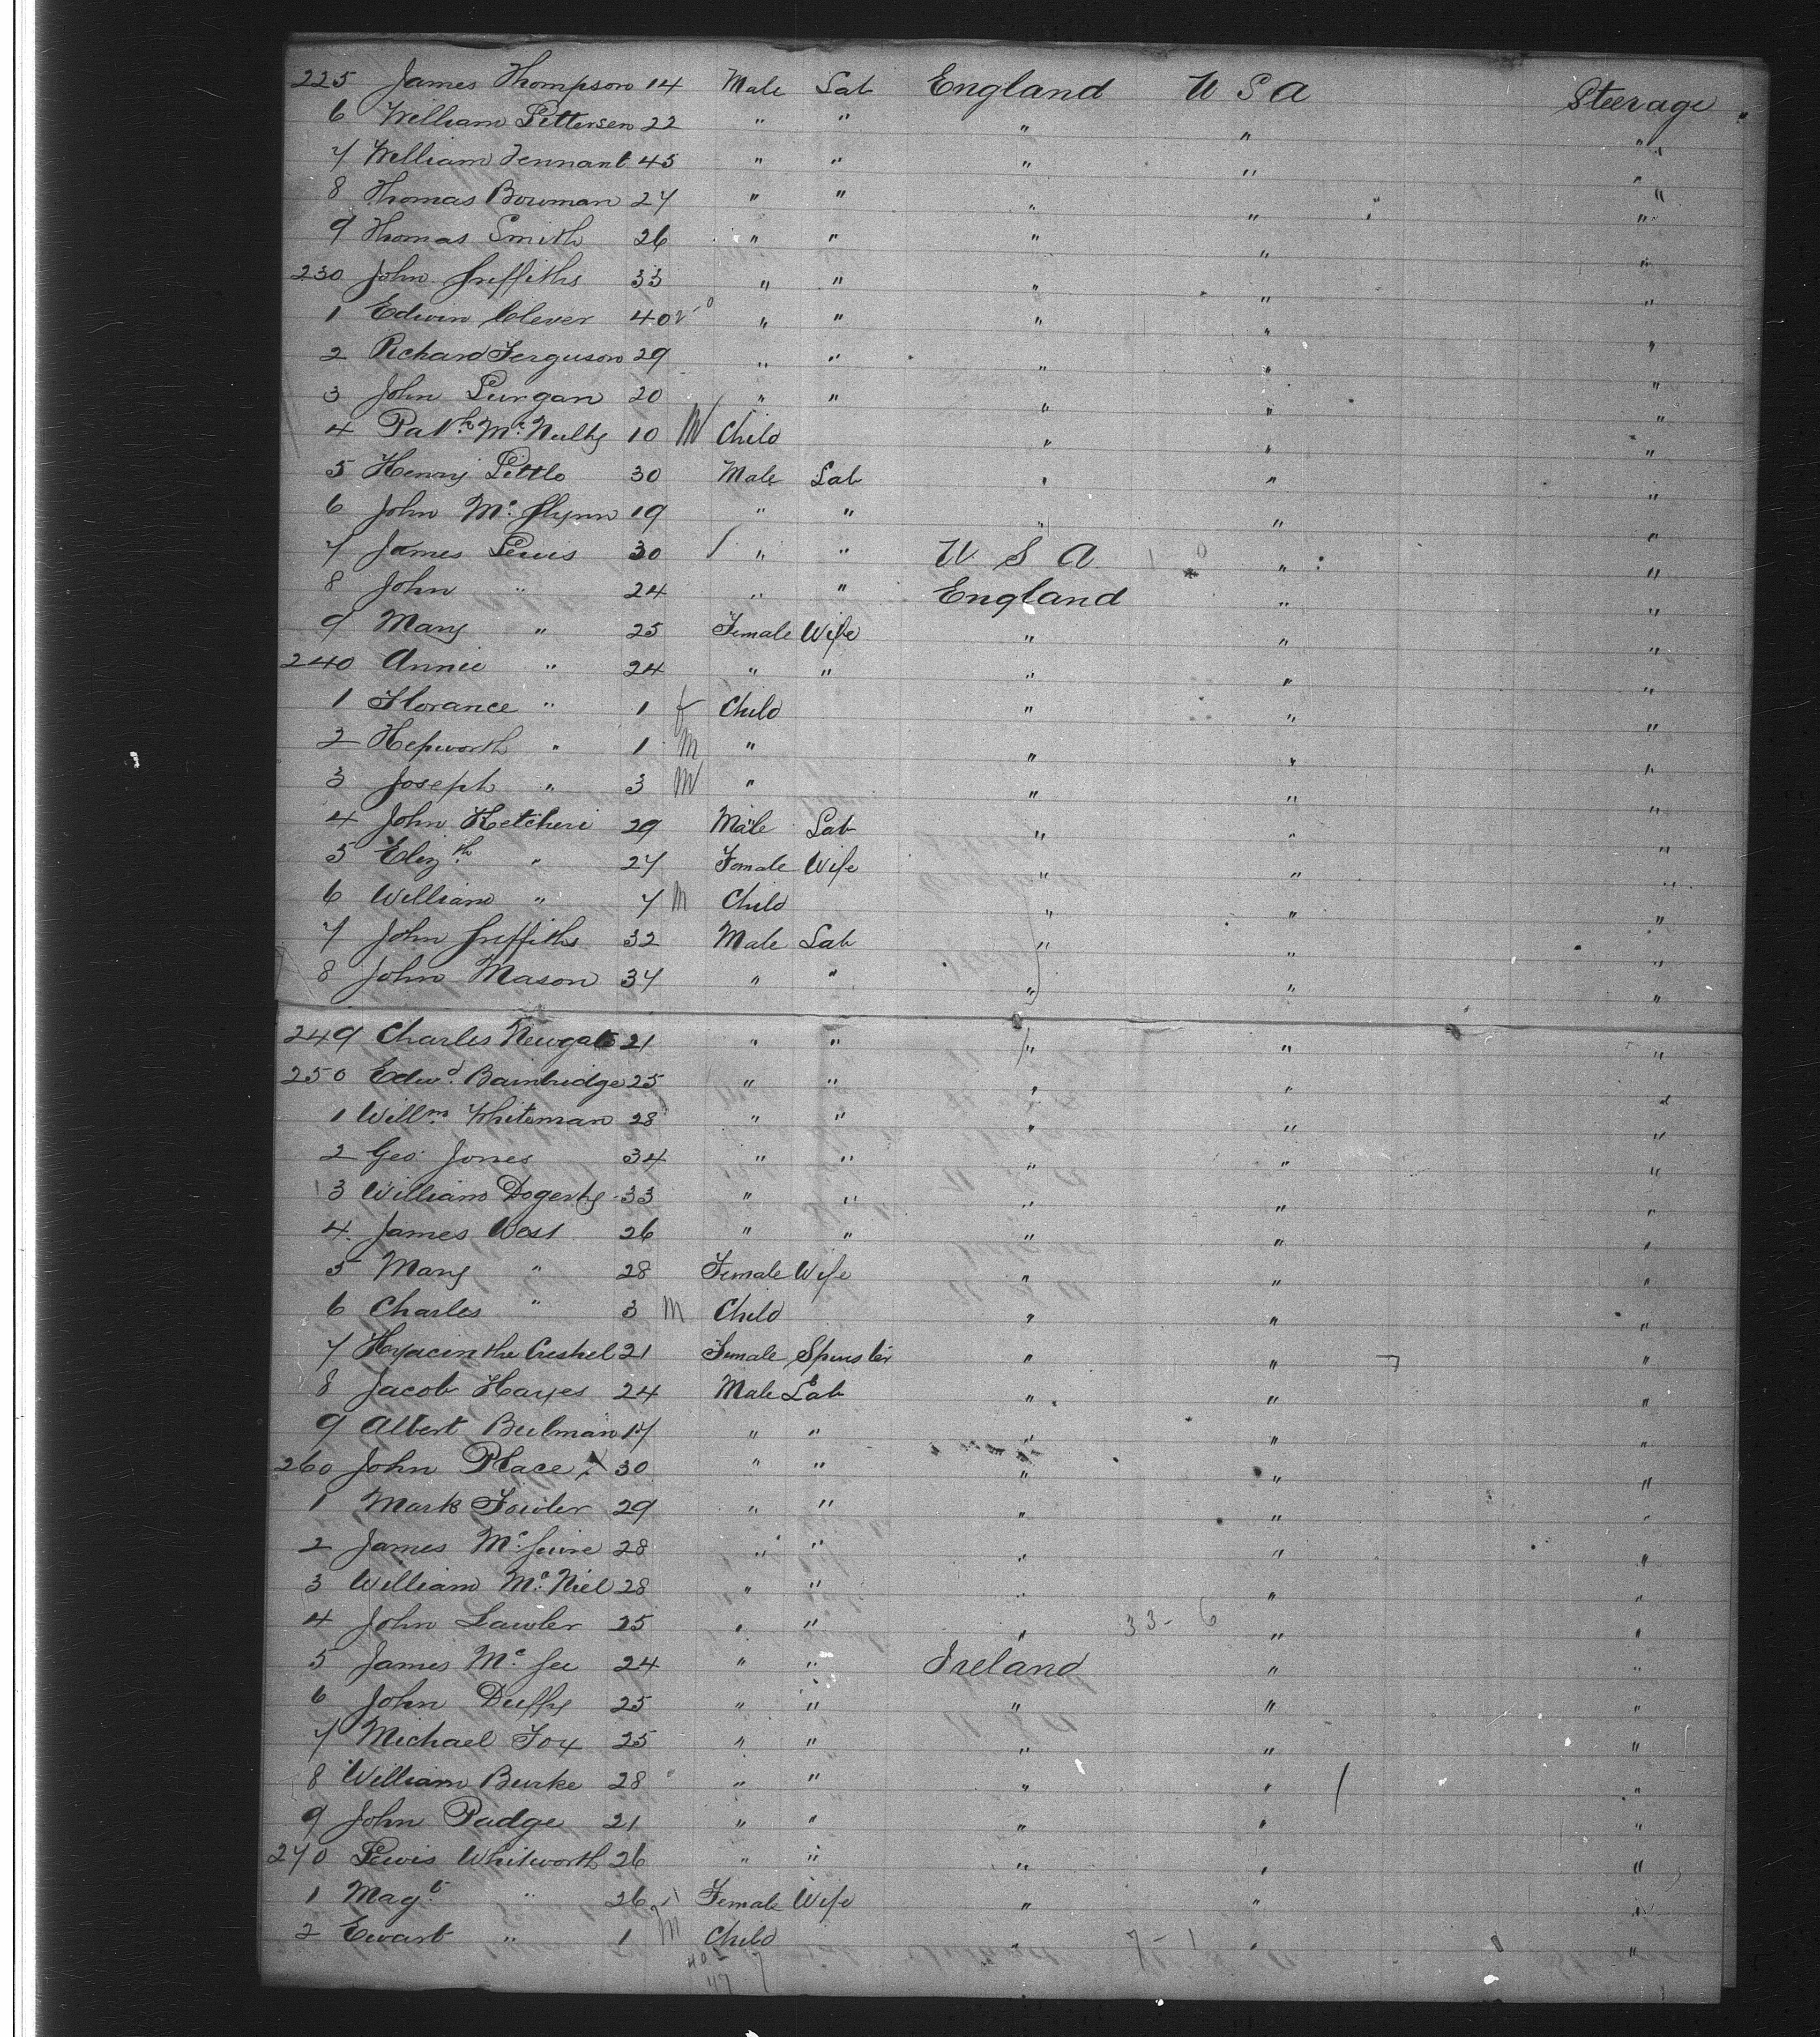 225 James Thompson 14 Male Lab England U S A Steerage
6 William Pettersen 22 " " " " "
7 William Tennant 45 " " " " "
8 Thomas Bowman 27 " " " " "
9 Thomas Smith 26 " " " " "
230 John Griffiths 33 " " " " "
1 Edwin Clever 40 " " " " "
2 Richard Ferguson 29 " " " " "
3 John Durgan 20 " " " " "
4 Patk. Mc. Nulty 10 M Child " " "
5 Henry Little 30 Male Lab " " "
6 John Mc. Flynn 19 " " " " "
7 James Lewis 30 " " U S A " "
8 John " 24 " " England " "
9 Mary " 25 Female Wife " " "
240 Annie " 24 " " " " "
1 Florance " 1 f Child " " "
2 Hepworth " 1 M " " " "
3 Joseph " 3 M " " " "
4 John 29 Male Lab " " "
5 Elizth. " 27 Female Wife " " "
6 William " 7 M Child " " "
7 John Griffiths 32 Male Lab " " "
8 John Mason 37 " " " " "
249 Charles Newgate 21 " " " " "
250 Edwd. Bainbridge 25 " " " " "
1 Willm. Whiteman 28 " " " " "
2 Geo. Jones 34 " " " " "
3 William Dogerty 33 " " " " "
4. James West 26 " " " " "
5 Mary " 28 Female Wife " " "
6 Charles " 3 M Child " " "
7 Hyacinthe 21 Female Spinster " " "
8 Jacob Hayes 24 Male Lab " " "
9 Albert Bulman 17 " " " " "
260 John Place 30 " " " " "
1 Mark Fowler 29 " " " " "
2 James Mc. Guire 28 " " " " "
3 William Mc. Niel 28 " " " " "
4 John Lawler 25 " " " 33-6 " "
5 James Mc. Gee 24 " " Ireland " "
6 John Duffy 25 " " " " "
7 Michael Fox 25 " " " " "
8 William Burke 28 " " " " "
9 John Padge 21 " " " " "
270 Lewis Whitworth 26 " " " " "
1 Magt. " 26 Female Wife " " "
2 Ewart " 1 M Child " " "